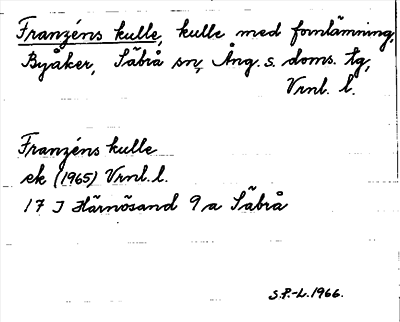 Franzéns kulle, kulle med fornlämning,
Byåker, Säbrå sn, Ång. s. doms. tg,
Vrnl. l.
Franzéns kulle
ek (1965) Vrnl. l.
17 J Härnösand 9 a Säbrå
S.P.-L. 1966.